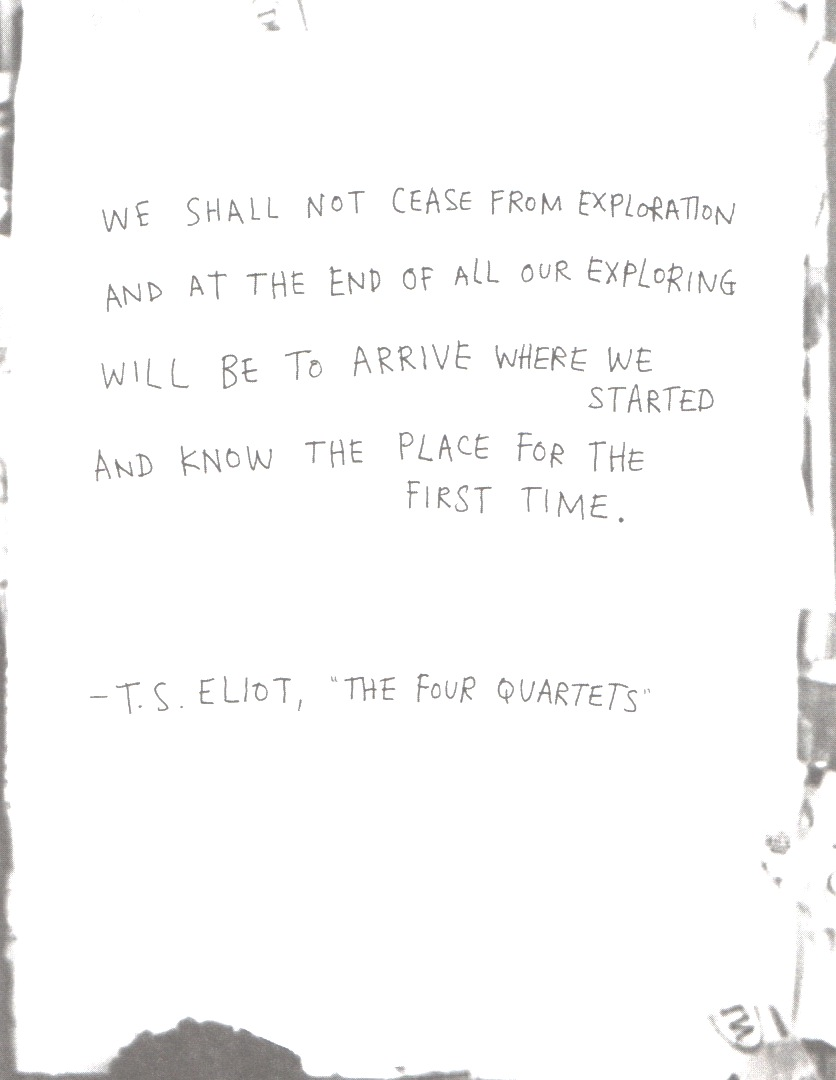 WE SHALL NOT CEASE FROM EXPLORATION
AND AT THE END OF ALL OUR EXPLORING
WILL BE TO ARRIVE WHERE WE
STARTED
AND KNOW THE PLACE FOR THE
FIRST TIME.
–T.S. ELIOT, "THE FOUR QUARTETS"